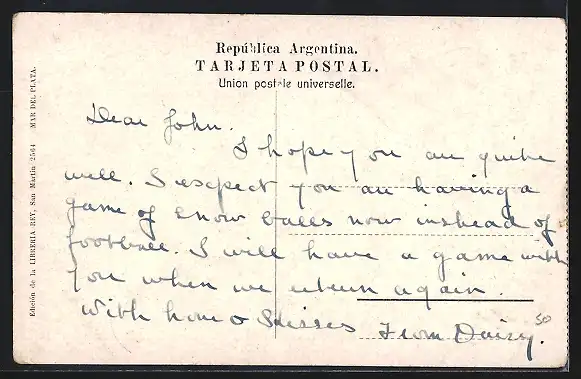 República Argentina.
TARJETA POSTAL.
Union postale universelle.
Edición de la LIBRERIA REY, San Martin 2564 MAR DEL PLATA.
Dear John.
I hope you are quite
well. I expect you are having a
game of snow balls now instead of
football. I will have a game with
you when we return again.
With love & kisses From Daisy.
50